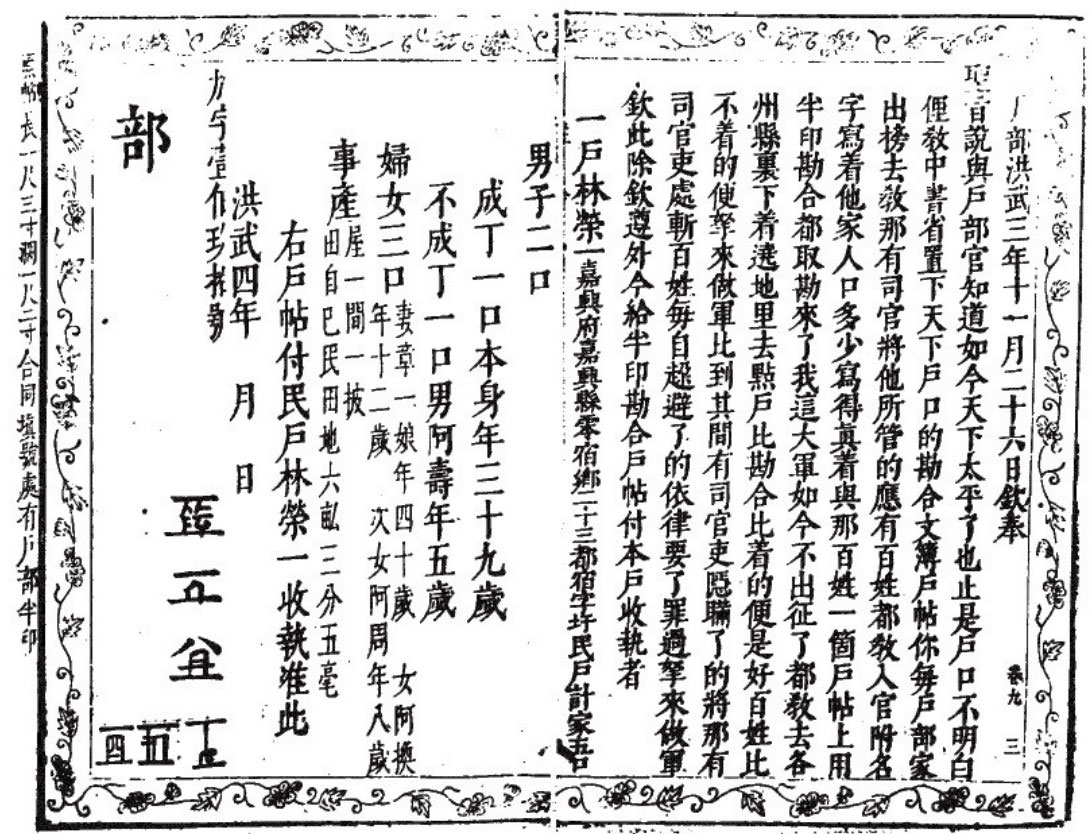 部洪武三年十一月二十六日欽奉
聖旨說與戶部官知道如今天下太平了也止是戶口不明白
俚教中書省置下天下戶口的勘合文簿戶帖你每戶部家
出榜去教那有司官將他所管的應有百姓都教入官附名
字寫着他家人口多少寫得眞着與那百姓一箇戶帖上用
半印勘合都取勘來了我這大軍如今不出征了都教去各
州縣裏下着遶地里去點戶比勘合比着的便是好百姓比
不着的便拏來做軍比到其間有司官吏隱瞞了的將那有
司官吏處斬百姓每自趓避了的依律要了罪過拏來做軍
欽此除欽遵外今給半印勘合戶帖付本戶收執者
一戶林榮一嘉興府嘉興縣零宿鄉二十三都宿字圩民戶計家五口
男子二口
成丁一口本身年三十九歲
不成丁一口男阿壽年五歲
婦女三口妻章一娘年四十歲 女阿換
年十二歲 次女阿周年八歲
事產屋一間一披
田自己民田地六畝三分五毫
右戶帖付民戶林榮一收執准此
洪武四年 月 日
字壹佰玖拾號
部
卷九 三
長一尺三寸濶一尺二寸合同填號處有戶部半印